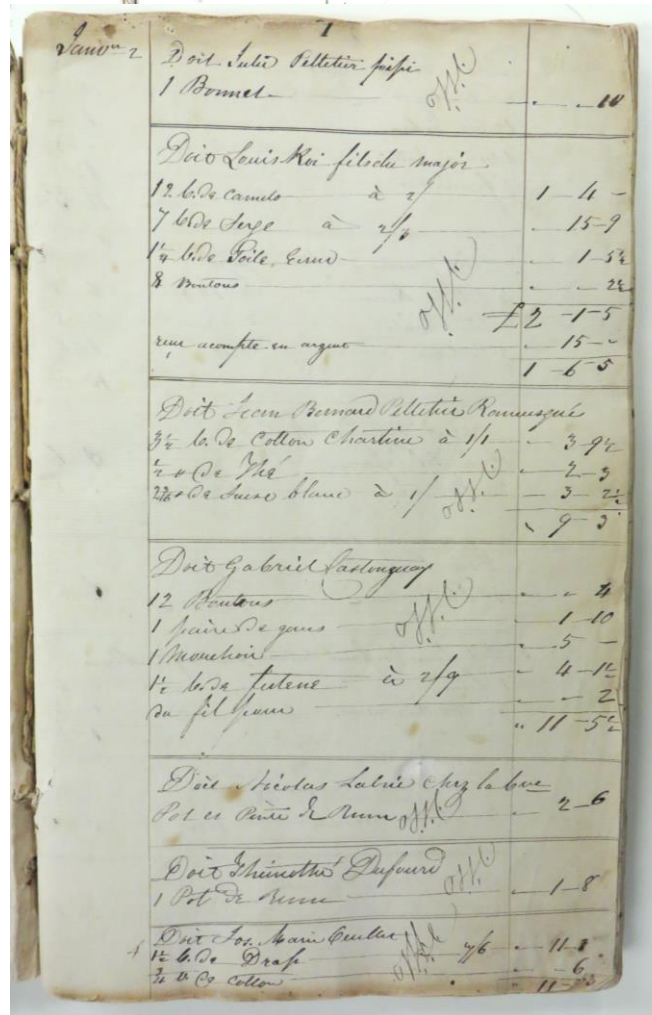 1
Janv 2
Doit Julie Pelletier
1 Bonnet - - 10
Doit Louis Roi fils du major
12 v. de camelo à 2/ 1 4 -
7 v. de Serge à 2/3 - 15-9
1¼ v. de Toile - 1-5½
8 Boutons - - 2½
£2-1-5
reçu acompte en argent - 15 - -
1-6-5
Doit Jean Bernard Pelletier
3½ v. de Cotton à 1/1 - 3-9½
½ # de Thé - 2-3
de Sucre blanc à 1/ - 3 2½
9-3
Doit Gabriel Castonguay
12 Boutons - - 4
1 paire de gans - 1-10
1 Mouchoir - 5 -
1½ v. de futene à 2/9 - 4-1½
du fil pour - - 2
" 11-5½
Doit Nicolas Labrie chez la
Pot et Pinte de Rum - 2-6
Doit Dufourd
1 Pot de Rum - 1-8
Doit Jos. Marie
1½ v. de Drap 7/6 - 11-3
¾ v. de Cotton - 6